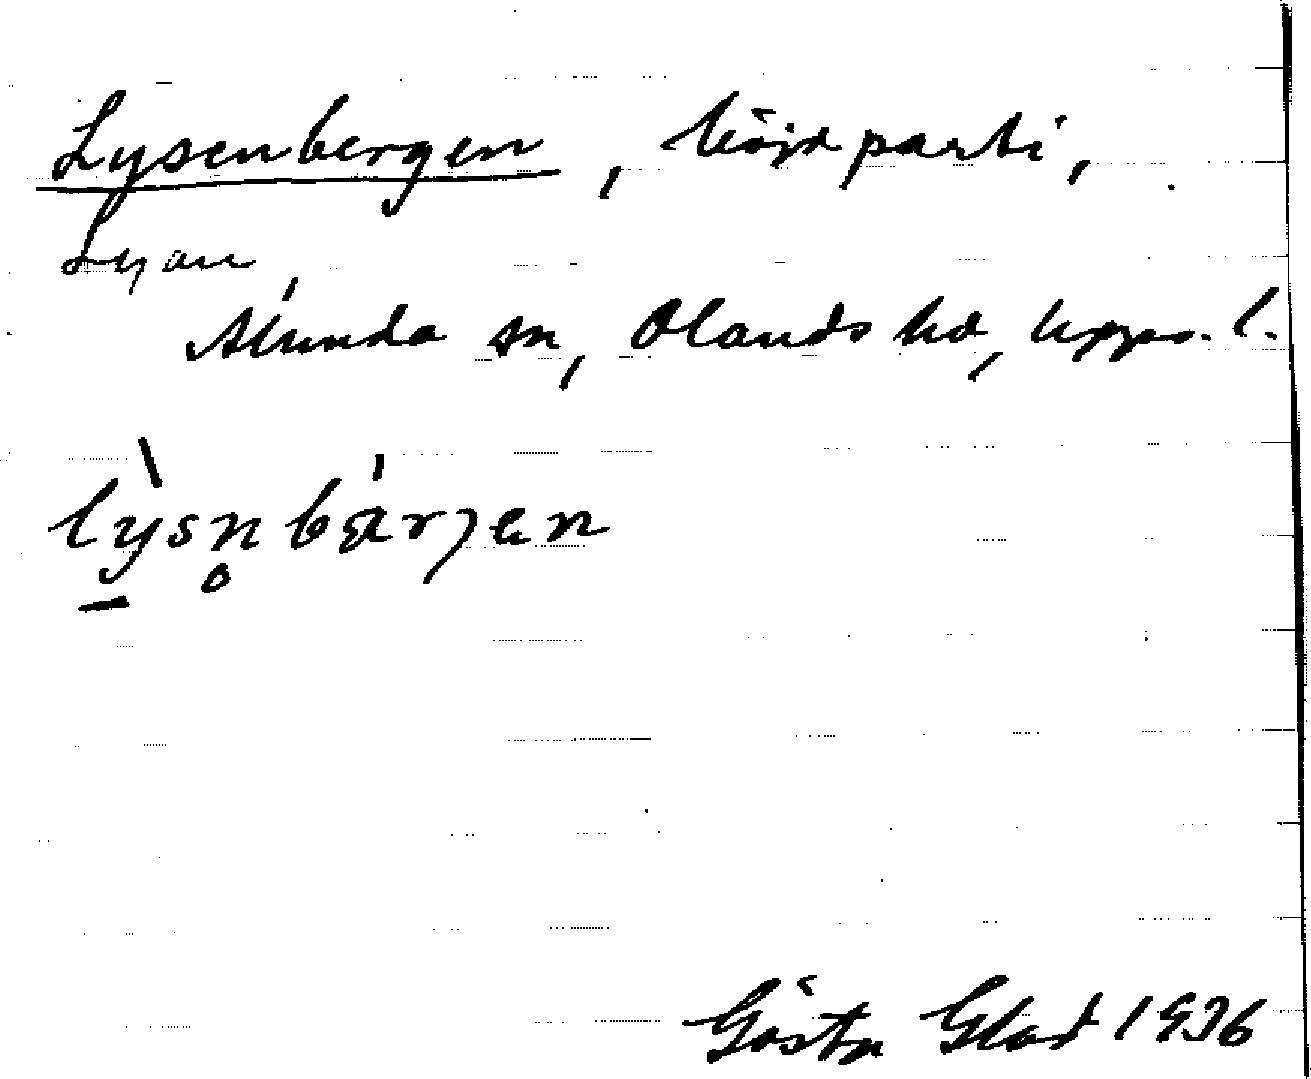 Lysenbergen, höjdparti,
Lyan,
Alunda sn, Olands hd, Upps. l.
lỳsn̥bǽrjen
Gösta Glad 1936